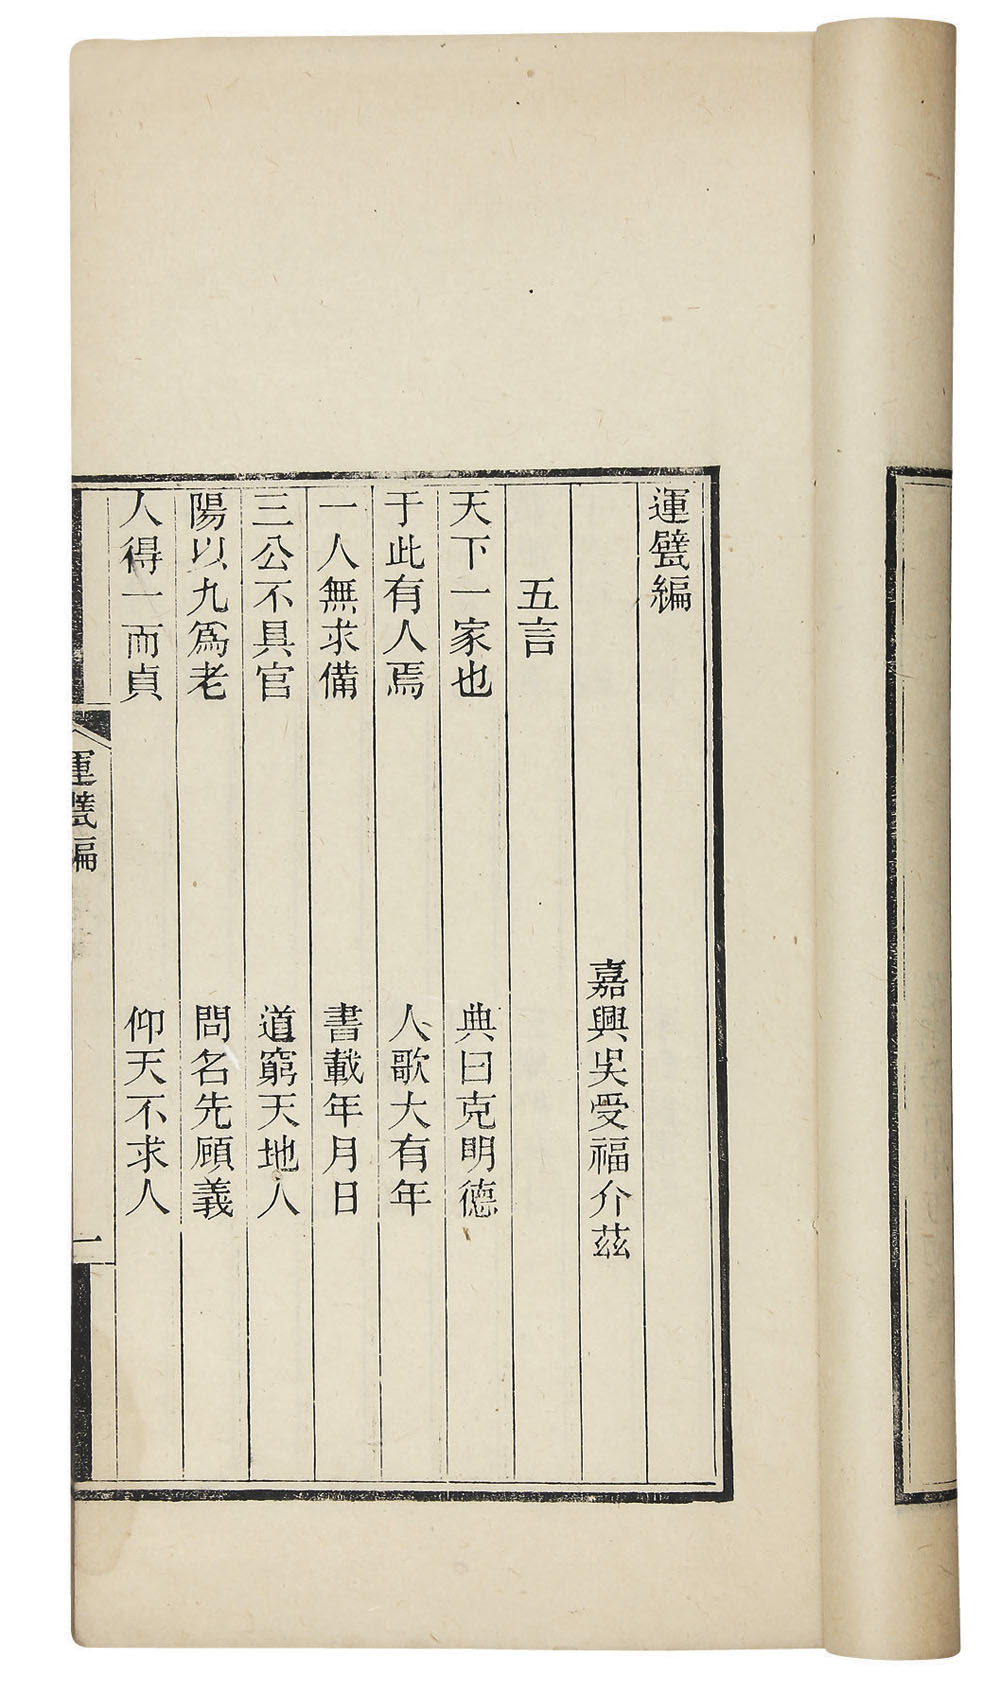 運甓編
嘉興吳受福介茲
五言
天下一家也　典曰克明德
于此有人焉　人歌大有年
一人無求備　書載年月日
三公不具官　道窮天地人
陽以九爲老　問名先顧義
人得一而貞　仰天不求人
運甓編
一